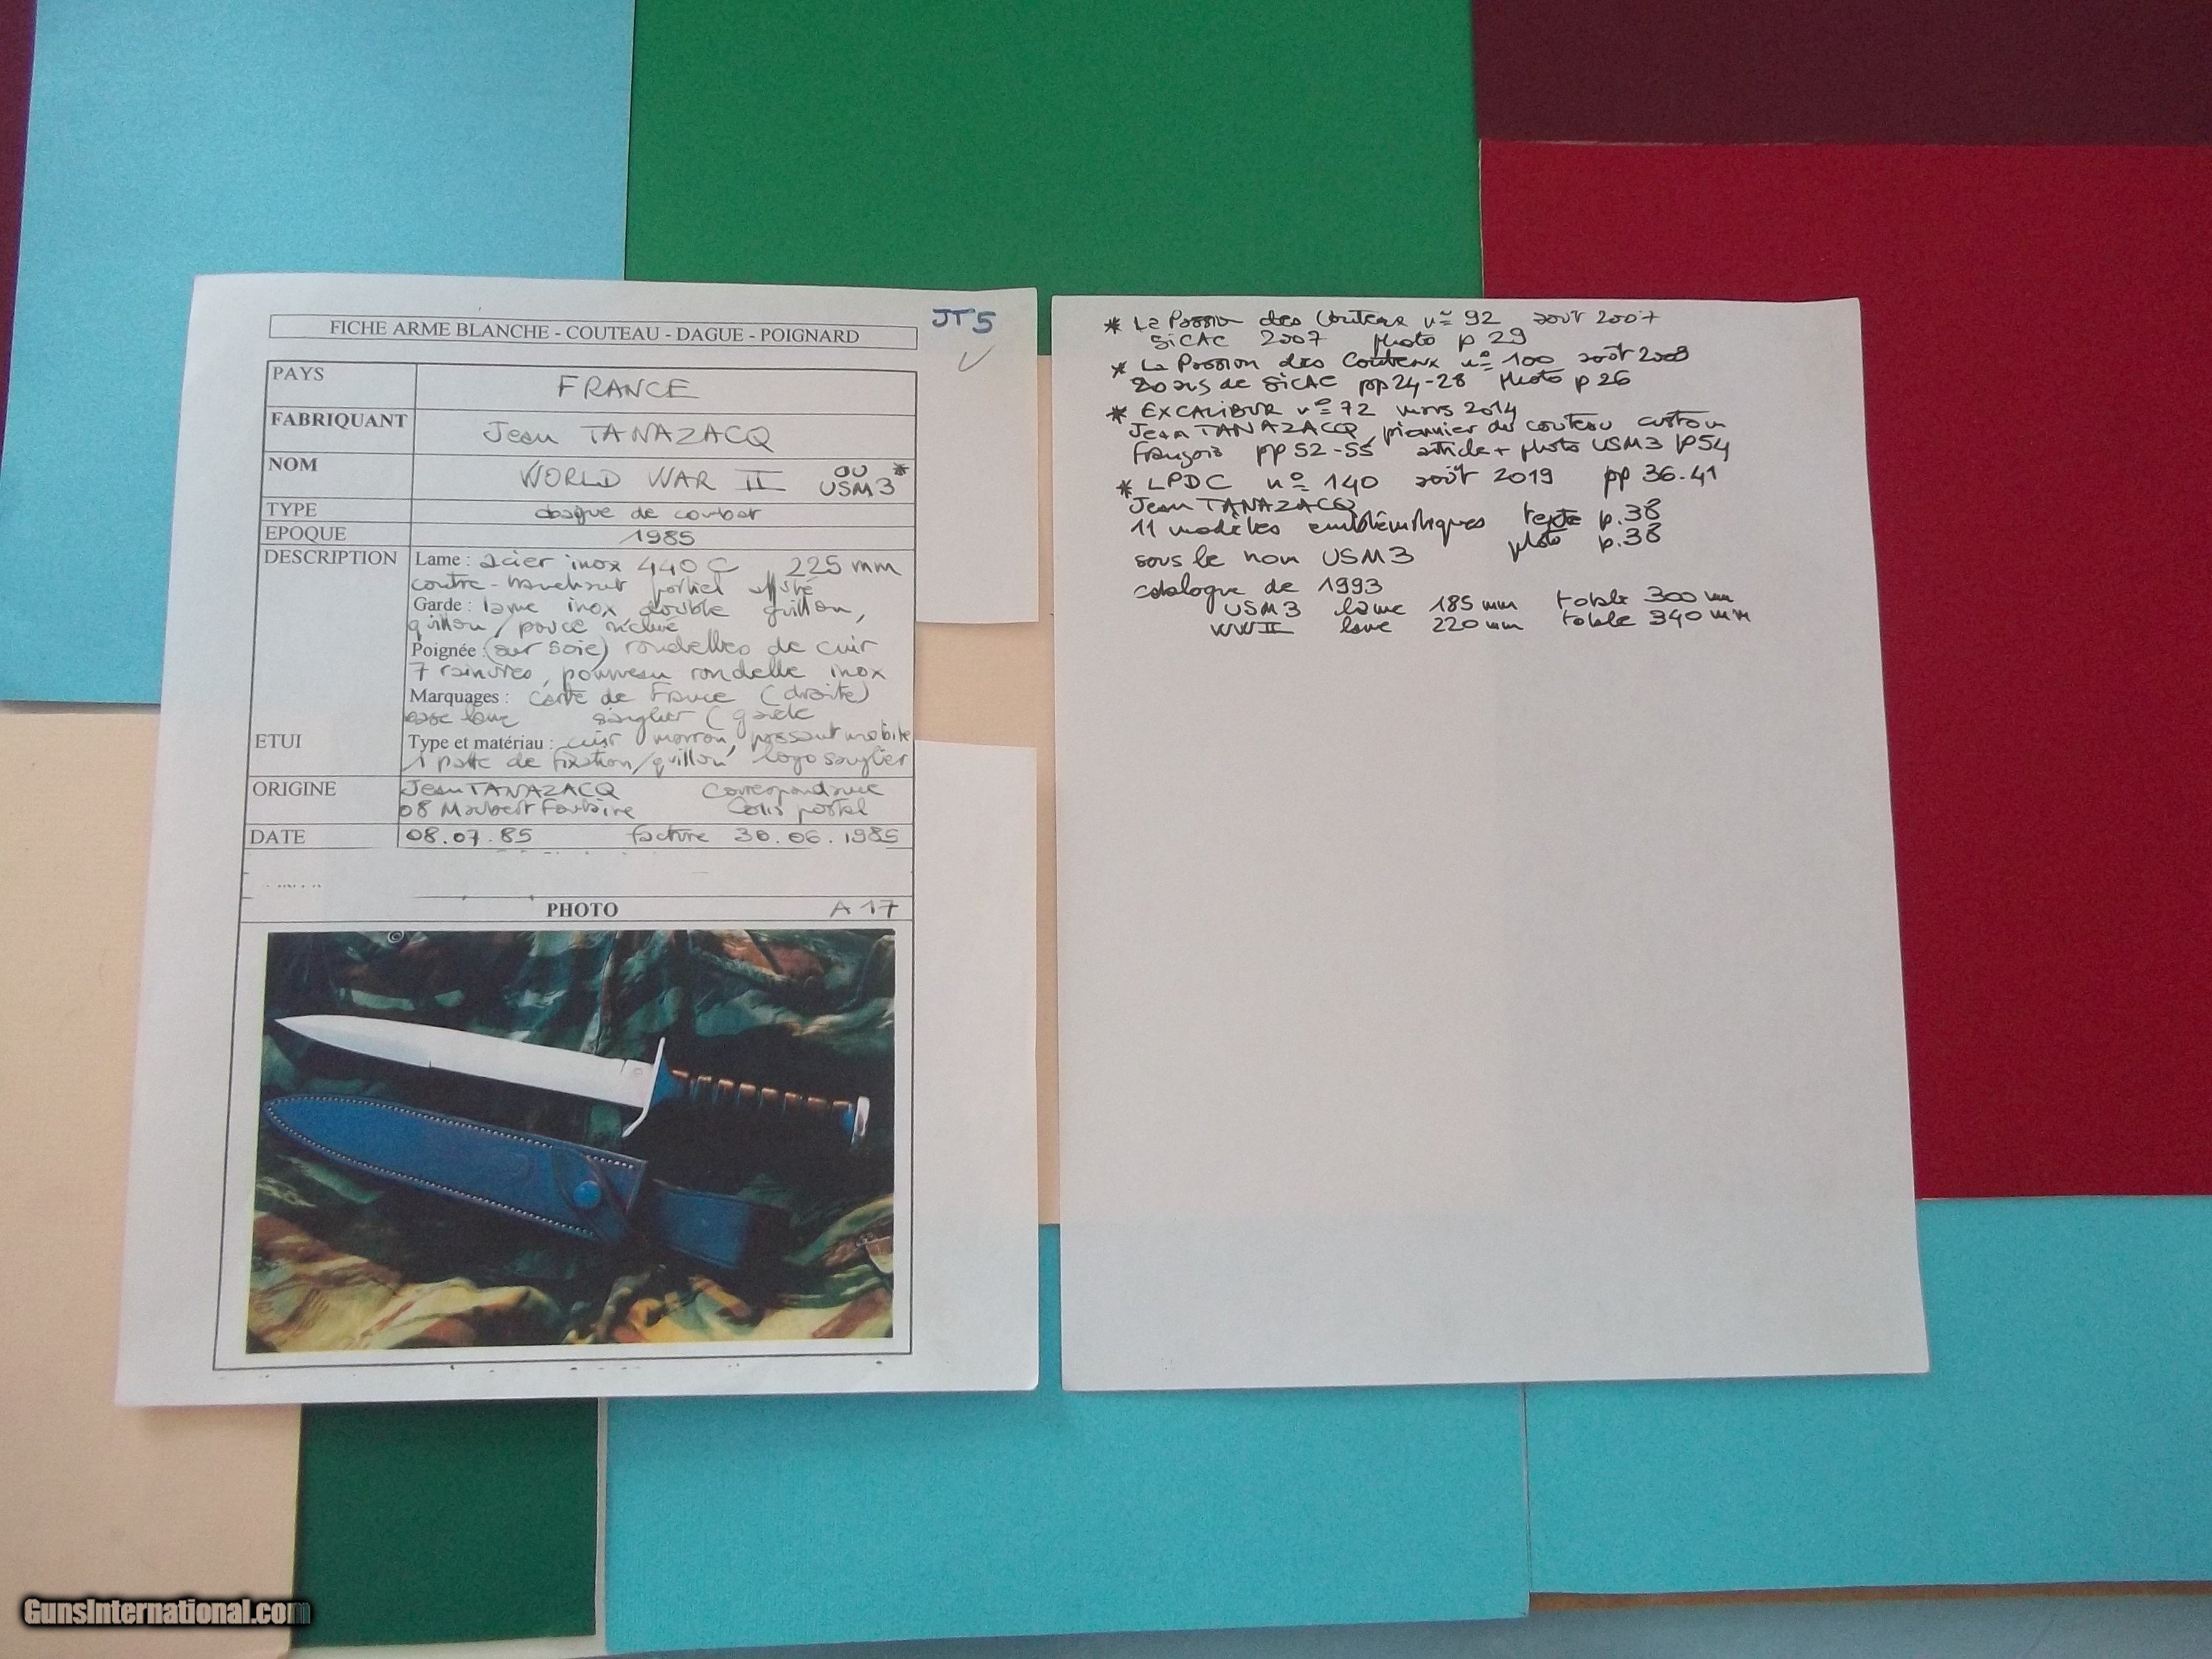 JT5
FICHE ARME BLANCHE - COUTEAU - DAGUE - POIGNARD
PAYS FRANCE
FABRIQUANT Jean TANAZACQ
NOM WORLD WAR II OU *
USM3
TYPE dague de combat
EPOQUE 1985
DESCRIPTION Lame : acier inox 440 C 225 mm
contre-tranchant partiel affûté
Garde : lame inox double quillon,
quillon/pouce incliné
Poignée : (sur soie) rondelles de cuir
7 rainures, pommeau rondelle inox
Marquages : carte de France (droite)
base lame sanglier (
ETUI Type et matériau : cuir marron, passant mobile
1 patte de fixation/quillon logo sanglier
ORIGINE Jean TANAZACQ Correspondance
08 Maubert Fontaine Colis postal
DATE 08.07.85 facture 30.06.1985
PHOTO A 17
* La Passion des Couteaux n° 92 août 2007
SICAC 2007 photo p 29
* La Passion des Couteaux n° 100 août 2009
20 ans de SICAC pp 24-28 photo p 26
* EXCALIBUR n° 72 mars 2014
Jean TANAZACQ, pionnier du couteau custom
français pp 52-55 article + photo USM3 p54
* LPDC n° 140 août 2019 pp 36.41
Jean TANAZACQ
11 modèles emblématiques texte p.38
photo p.38
sous le nom USM3
catalogue de 1993
USM3 lame 185 mm totale 300 mm
WWII lame 220 mm totale 340 mm
GunsInternational.com